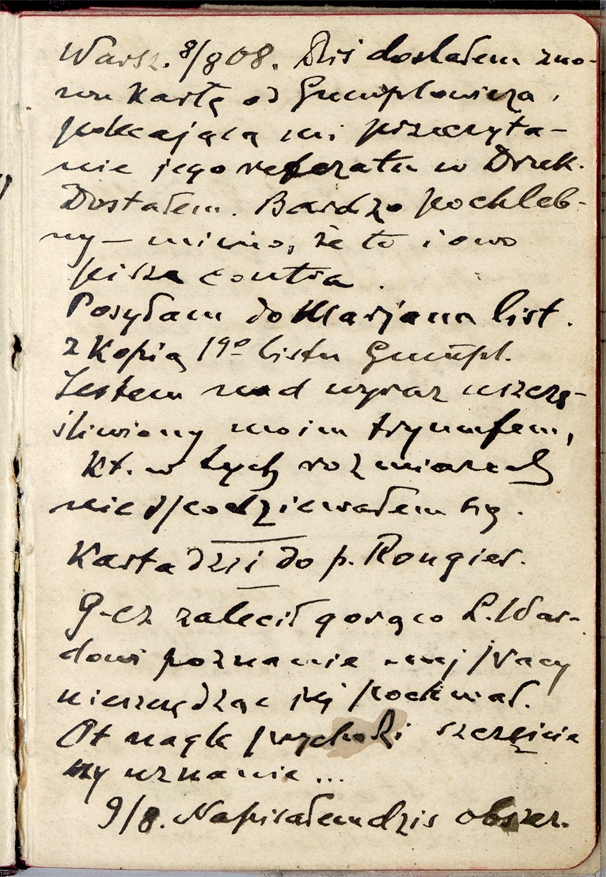 Warsz. 8/8 08. Dziś dostałem zno-
wu kartę od Gumplowicza,
polecającą mi przeczyta-
nie jego referatu w Druk.
Dostałem. Bardzo pochleb-
ny – mimo, że to i owo
pisze contra.
Posyłam do Marjana list.
z kopią 19º listu Gumpl.
Jestem nad wyraz uszczę-
śliwiony moim tryumfem,
kt. w tych rozmiarach
nie spodziewałem się.
Karta dziś do p. Rougier.
G-cz zalecił gorąco L. War-
dowi poznanie mej pracy
nieszczędząc jej pochwał.
Ot nagle przychodzi szczęście
czy uznanie...
9/8. Napisałem dziś obszer.